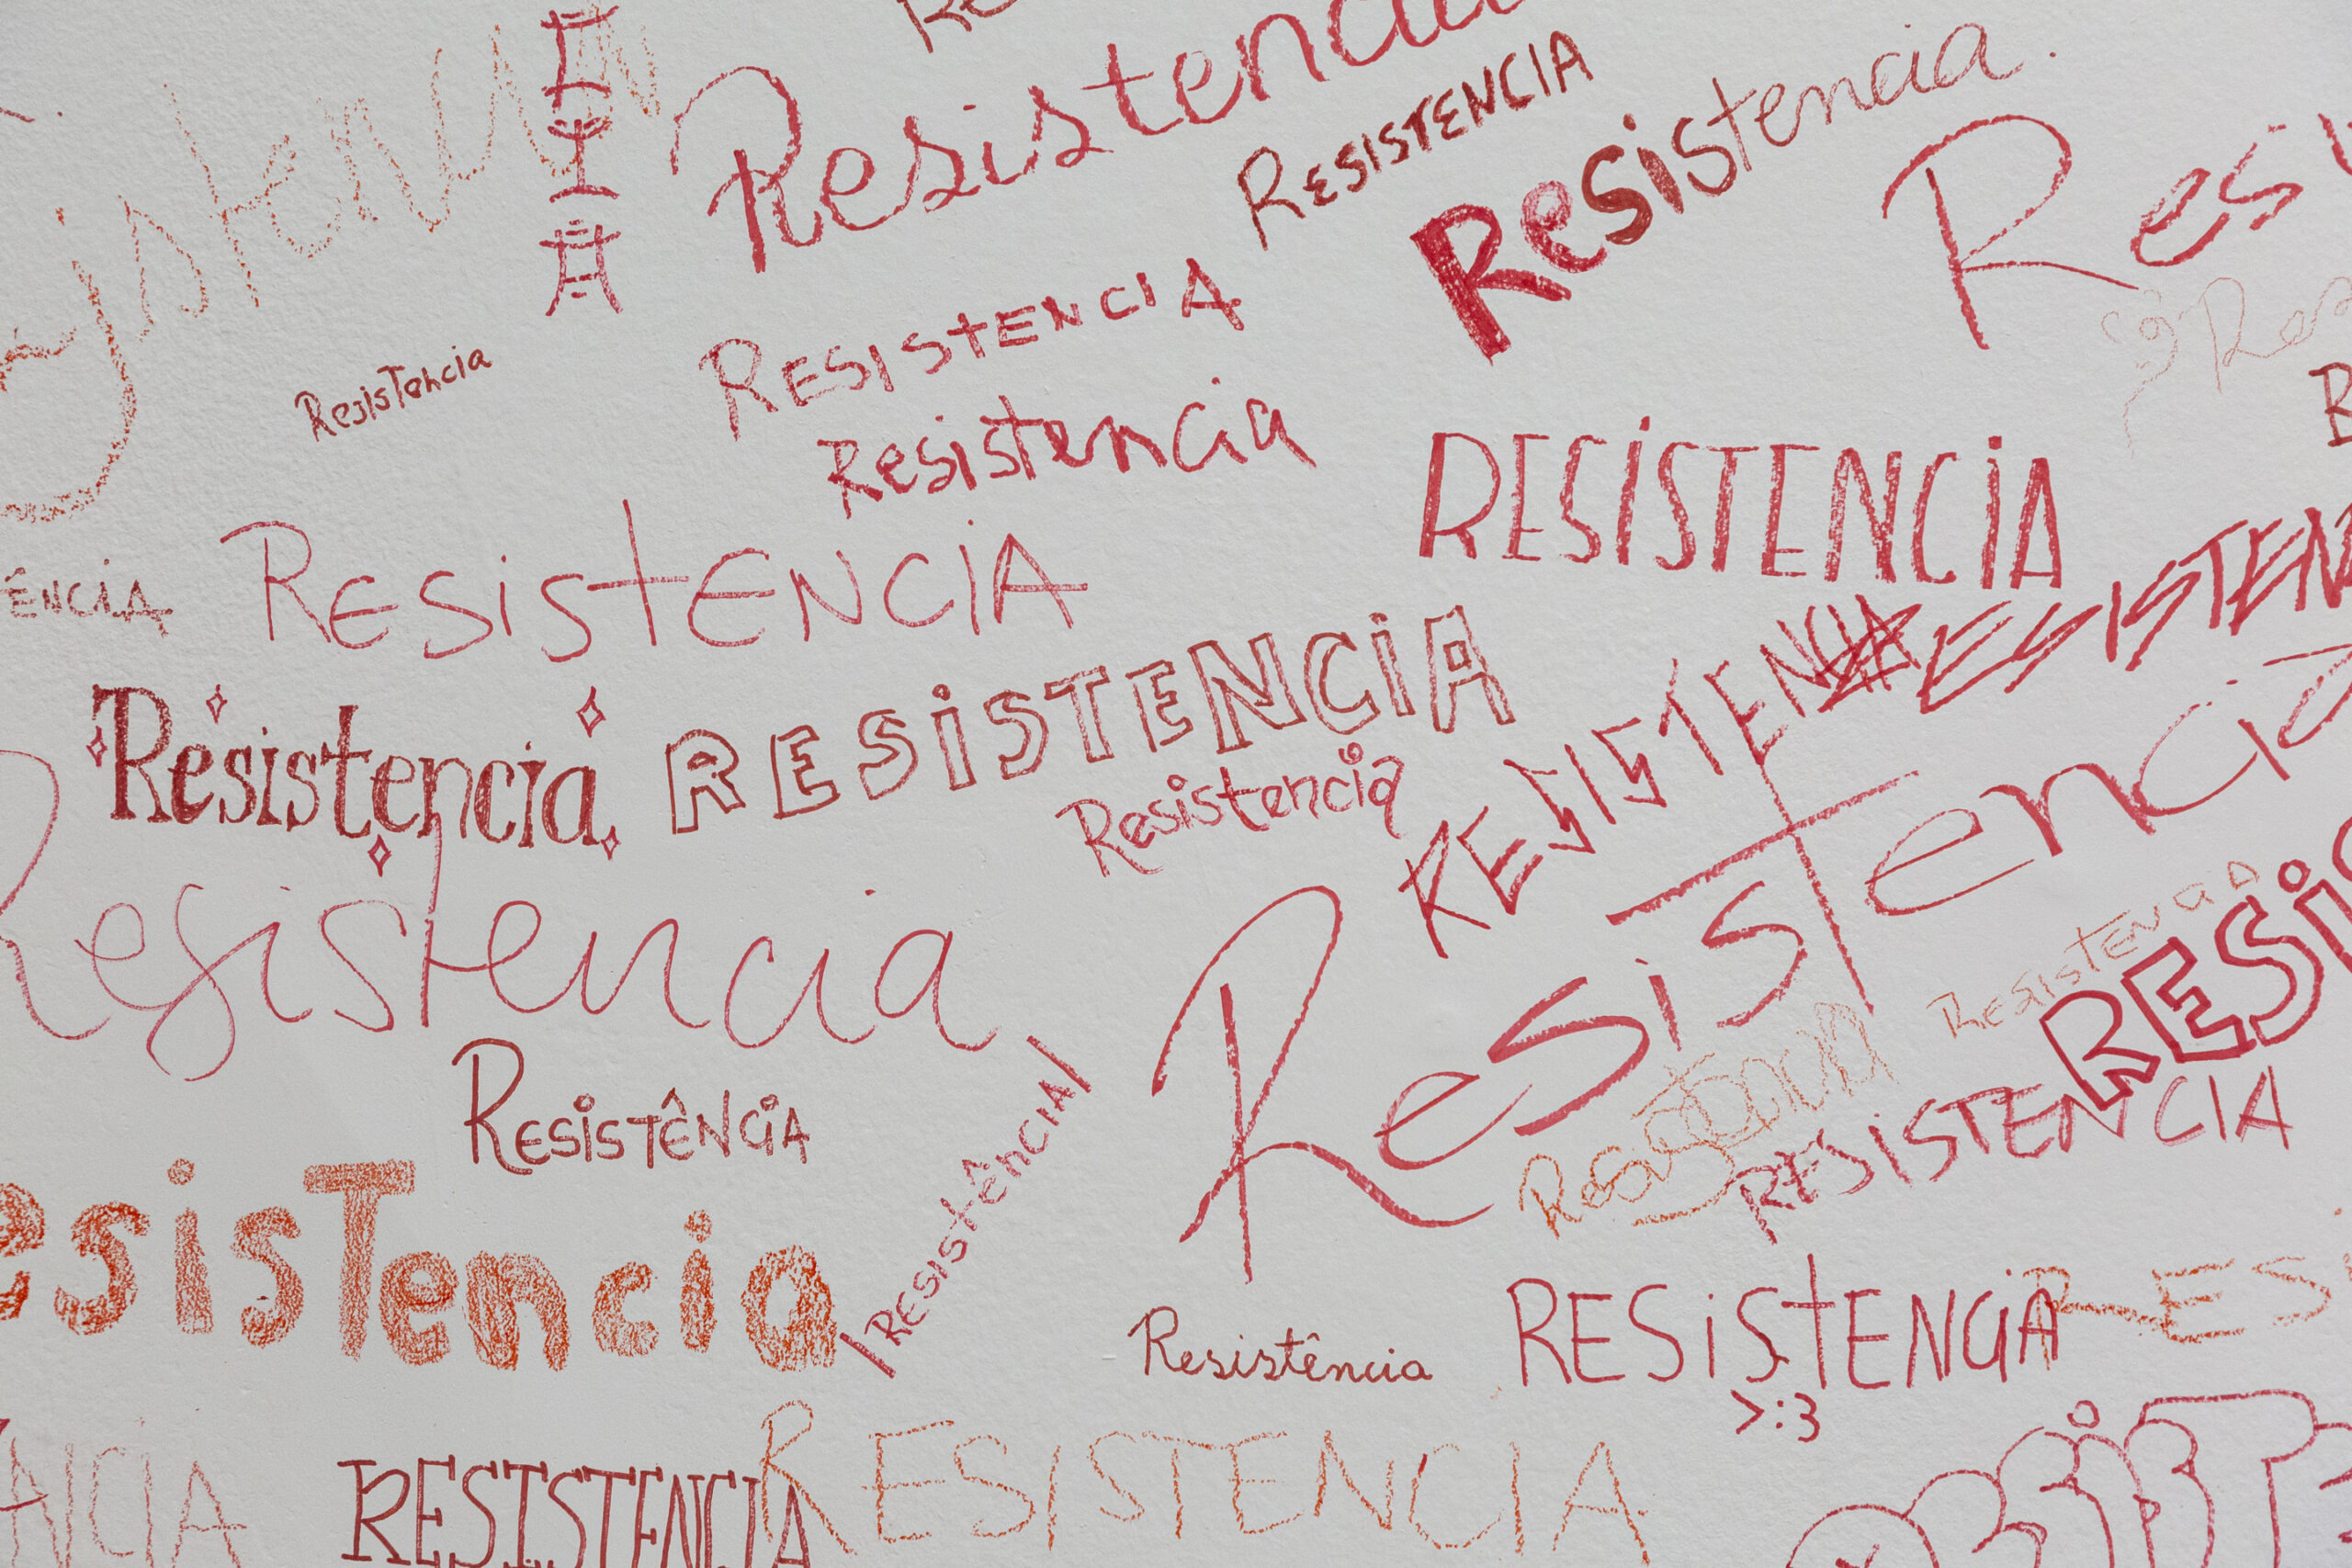 Re
Resistencia
CIA
RESISTENCIA
Resistencia.
Resi
RESISTENCIA
Resistencia
Res
Resistencia
RESISTENCIA
RESiSTENCiA
ÊNCiA
ResistENCIA
ESISTEN
RESISTENCIA
Resistencia
RESiSTENCiA
Resistencia
Resistencia
Resistencia
Resistencia
RESiS
RESISTÊNCiA
|RESISTêNCIA|
RESISTENCIA
esisTencia
Resistência
RESiSTENCIA
>:3
RESI
NCIA
RESISTENCIA
RESISTENCIA